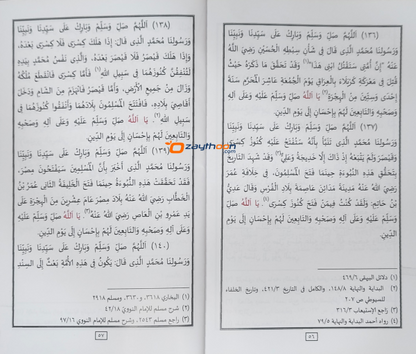 (١٣٦) اَللّٰهُمَّ صَلِّ وَسَلِّمْ وَبَارِكْ عَلَى سَيِّدِنَا وَنَبِيِّنَا
وَرَسُولِنَا مُحَمَّدٍ الَّذِي قَالَ فِي شَأْنِ سِبْطِهِ الْحُسَيْنِ رَضِيَ اللهُ
عَنْهُ
قُتِلَ فِي مَعْرَكَةِ كَرْبَلَاءَ بِالْعِرَاقِ يَوْمَ الْجُمُعَةِ عَاشِرَ الْمُحَرَّمِ سَنَةَ
إِحْدَى وَسِتِّينَ مِنَ الْهِجْرَةِ يَا اَللهُ صَلِّ وَسَلِّمْ عَلَيْهِ وَعَلَى آلِهِ
وَصَحْبِهِ وَالتَّابِعِينَ لَهُمْ بِإِحْسَانٍ إِلَى يَوْمِ الدِّينِ.
(١٣٧) اَللّٰهُمَّ صَلِّ وَسَلِّمْ وَبَارِكْ عَلَى سَيِّدِنَا وَنَبِيِّنَا
وَرَسُولِنَا مُحَمَّدٍ الَّذِي
يَتَحَقَّقُ هَذِهِ النُّبُوءَةُ حِينَمَا فَتَحَ الْمُسْلِمُونَ، فِي خِلَافَةِ عُمَرَ
رَضِيَ اللهُ عَنْهُ مَدِينَةَ مَدَائِنَ عَاصِمَةَ بِلَادِ الْفُرْسِ
بْنُ حَاتِمٍ: وَلَقَدْ كُنْتُ فِيمَنْ فَتَحَ كُنُوزَ كِسْرَى يَا اَللهُ صَلِّ
وَسَلِّمْ عَلَيْهِ وَعَلَى آلِهِ وَصَحْبِهِ وَالتَّابِعِينَ لَهُمْ بِإِحْسَانٍ إِلَى يَوْمِ
الدِّينِ.
(١) دلائل البيهقي ٤٦٩/٦
(٢) البداية والنهاية ١٤٨/٨، والكامل في التاريخ ٤٢١/٣، وتاريخ الخلفاء
للسيوطي ص ٢٠٧
(٣) راجع الإستيعاب ٣١٦/٣
(٤) رواه أحمد البداية والنهاية ٧٩/٥
٥٦
(١٣٨) اَللّٰهُمَّ صَلِّ وَسَلِّمْ وَبَارِكْ عَلَى سَيِّدِنَا وَنَبِيِّنَا
وَرَسُولِنَا مُحَمَّدٍ الَّذِي قَالَ: إِذَا هَلَكَ كِسْرَى فَلَا كِسْرَى بَعْدَهُ،
وَإِذَا هَلَكَ قَيْصَرُ فَلَا قَيْصَرَ بَعْدَهُ، وَالَّذِي نَفْسُ مُحَمَّدٍ بِيَدِهِ
لَتُنْفِقُنَّ كُنُوزَهُمَا فِي سَبِيلِ اللهِ فَأَمَّا كِسْرَى فَانْقَطَعَ مُلْكُهُ
وَزَالَ مِنْ جَمِيعِ الْأَرْضِ، وَأَمَّا قَيْصَرُ فَانْهَزَمَ مِنَ الشَّامِ وَدَخَلَ
أَقَاصِيَ بِلَادِهِ، فَافْتَتَحَ الْمُسْلِمُونَ بِلَادَهُمَا وَأَنْفَقُوا كُنُوزَهُمَا فِي
سَبِيلِ اللهِ يَا اَللهُ صَلِّ وَسَلِّمْ عَلَيْهِ وَعَلَى آلِهِ وَصَحْبِهِ
وَالتَّابِعِينَ لَهُمْ بِإِحْسَانٍ إِلَى يَوْمِ الدِّينِ.
zaythoon
(١٣٩) اَللّٰهُمَّ صَلِّ وَسَلِّمْ وَبَارِكْ عَلَى سَيِّدِنَا وَنَبِيِّنَا
وَرَسُولِنَا مُحَمَّدٍ الَّذِي أَخْبَرَ بِأَنَّ الْمُسْلِمِينَ سَيَفْتَحُونَ مِصْرَ،
فَقَدْ تَحَقَّقَتْ هَذِهِ النُّبُوءَةُ حِينَمَا فَتَحَ الْخَلِيفَةُ الثَّانِي عُمَرُ بْنُ
الْخَطَّابِ رَضِيَ اللهُ عَنْهُ بِلَادَ مِصْرَ عَامَ عِشْرِينَ مِنَ الْهِجْرَةِ عَلَى
يَدِ عَمْرِو بْنِ الْعَاصِ رَضِيَ اللهُ عَنْهُ يَا اَللهُ صَلِّ وَسَلِّمْ عَلَيْهِ
وَعَلَى آلِهِ وَصَحْبِهِ وَالتَّابِعِينَ لَهُمْ بِإِحْسَانٍ إِلَى يَوْمِ الدِّينِ.
(١٤٠) اَللّٰهُمَّ صَلِّ وَسَلِّمْ وَبَارِكْ عَلَى سَيِّدِنَا وَنَبِيِّنَا
وَرَسُولِنَا مُحَمَّدٍ الَّذِي قَالَ: يَكُونُ فِي هَذِهِ الْأُمَّةِ بَعْثٌ إِلَى السِّنْدِ
(١) البخاري ٣٦١٨، و ٣٦٣٠، ومسلم ٢٩١٨
(٢) شرح مسلم للإمام النووي ٤٢/١٨
(٣) راجع مسلم ٢٥٤٣، وشرح مسلم للإمام النووي ٩٧/١٦
٥٧